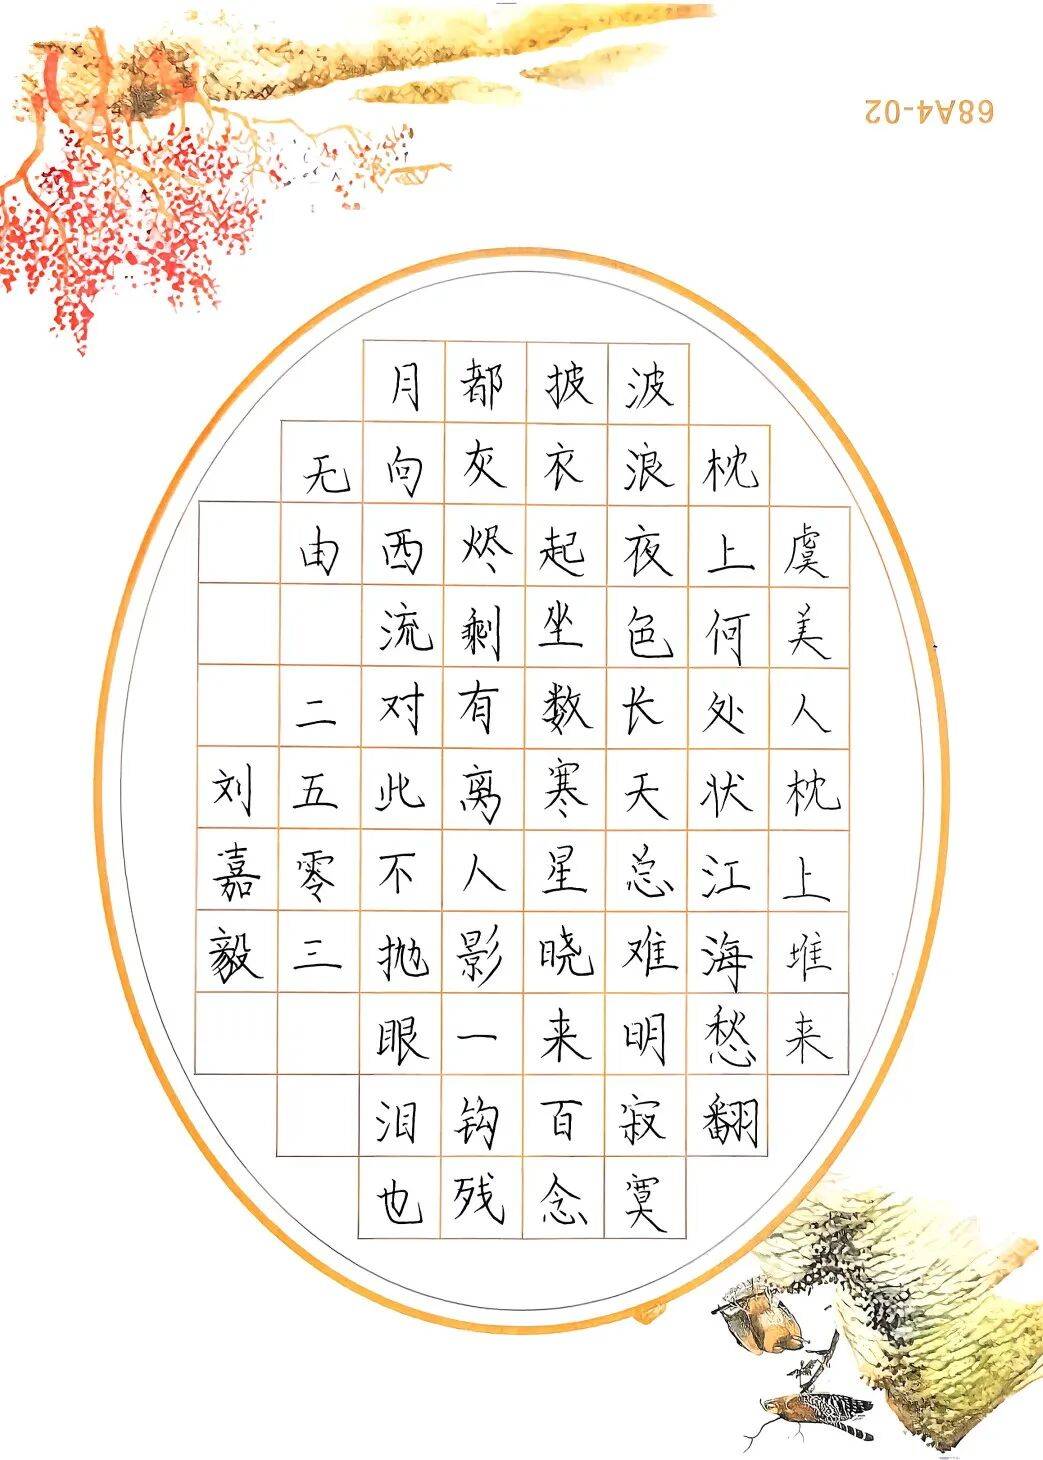 68A4-02
虞美人枕上堆来
枕上何处状江海愁翻
波浪夜色长天总难明寂寞
披衣起坐数寒星晓来百念
都灰烬剩有离人影一钩残
月向西流对此不抛眼泪也
无由 二五零三
刘嘉毅